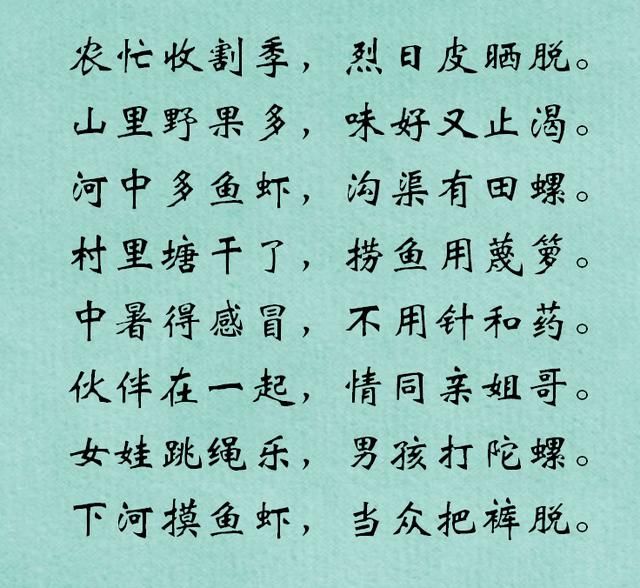 农忙收割季，烈日皮晒脱。
山里野果多，味好又止渴。
河中多鱼虾，沟渠有田螺。
村里塘干了，捞鱼用蔑箩。
中暑得感冒，不用针和药。
伙伴在一起，情同亲姐哥。
女娃跳绳乐，男孩打陀螺。
下河摸鱼虾，当众把裤脱。